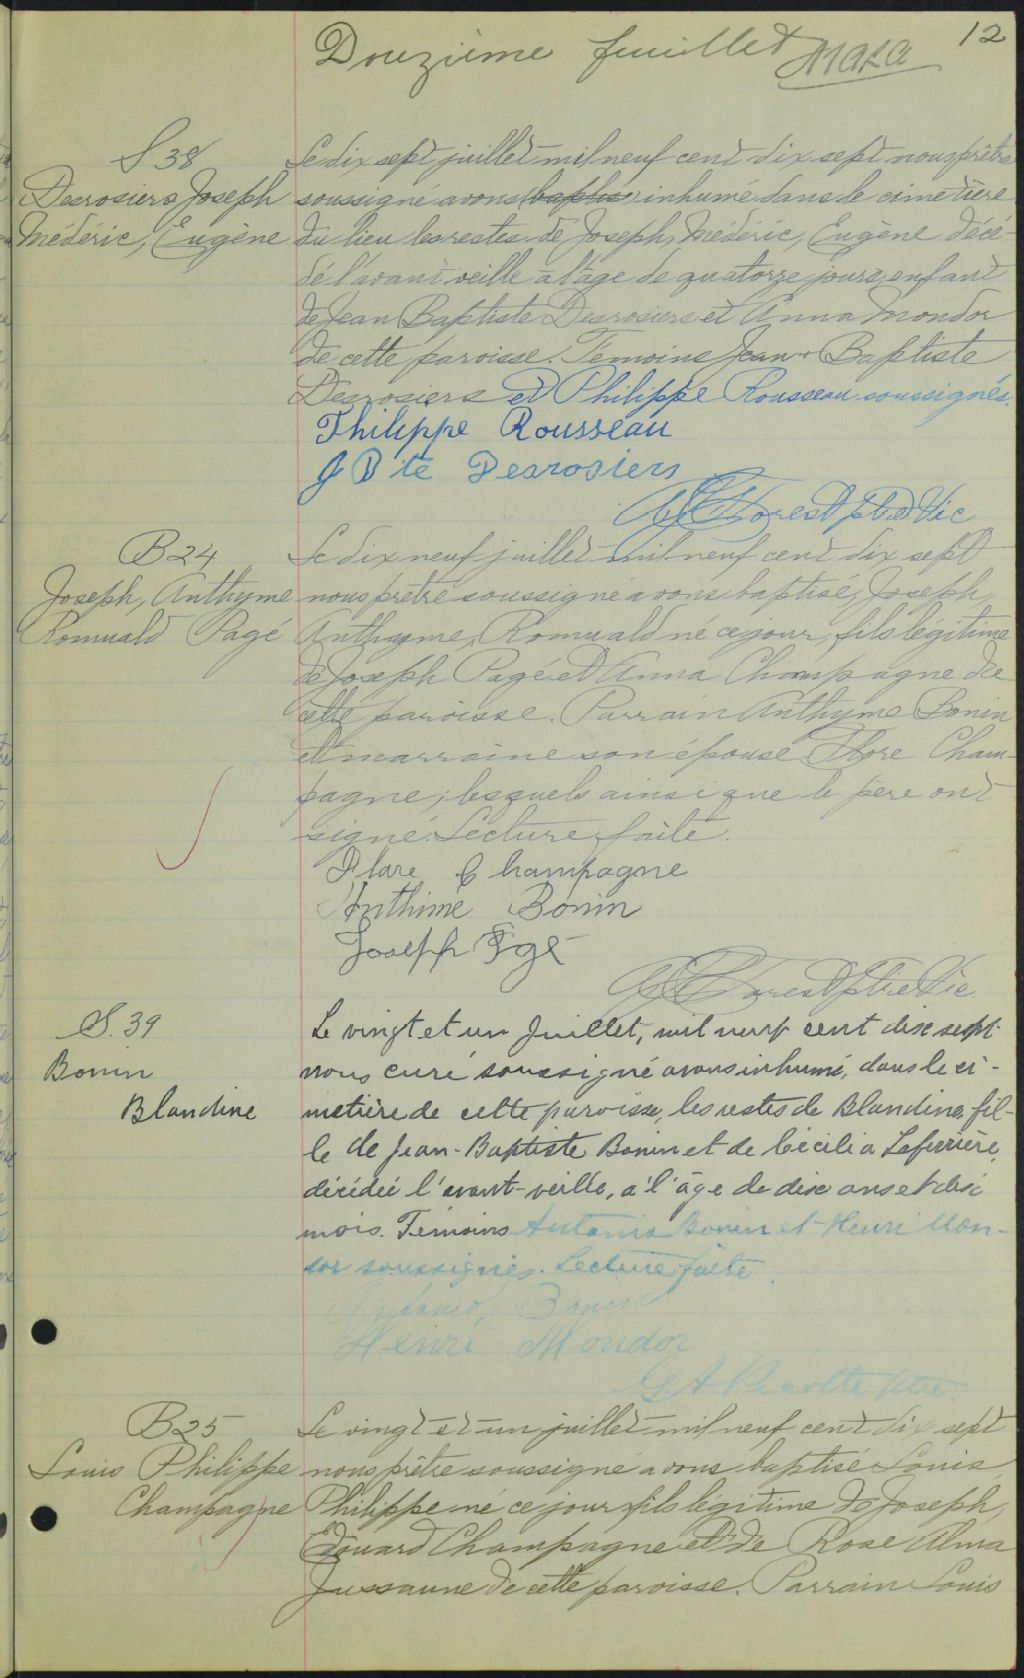 12
Douzième feuillet
S 38
Desrosiers Joseph
Médéric, Eugène
Le dix sept juillet mil neuf cent dix sept nous prêtre
soussigné avons (baptisé) inhumé dans le cimetière
du lieu les restes de Joseph, Médéric, Eugène décé-
dé l'avant veille à l'âge de quatorze jours, enfant
de Jean Baptiste Desrosiers et Anna Mondor
de cette paroisse. Temoins Jean-Baptiste
Desrosiers et Philippe Rousseau soussignés.
Philippe Rousseau
J Bte Desrosiers
Forest ptre Vic
B 24
Joseph, Anthyme
Romuald Pagé
Le dix neuf juillet mil neuf cent dix sept
nous prêtre soussigné avons baptisé, Joseph,
Anthyme, Romuald né ce jour, fils légitime
de Joseph Pagé et Anna Champagne de
cette paroisse. Parrain Anthyme Bonin
et marraine son épouse Flore Cham-
pagne; lesquels ainsi que le père ont
signé. Lecture faite.
Flore Champagne
Anthime Bonin
Joseph Pgé
Forest ptre Vic
S. 39
Bonin
Blandine
Le vingt et un Juillet, mil neuf cent dix sept
nous curé soussigné avons inhumé, dans le ci-
metière de cette paroisse, les restes de Blandine, fil-
le de Jean-Baptiste Bonin et de Cécilia Laferrière,
décédée l'avant-veille, à l'âge de dix ans et dix
mois. Témoins Antonio Bonin et Henri Mon-
dor soussignés. Lecture faite.
Antonio Bonin
Henri Mondor
ptre.
B 25
Louis Philippe
Champagne
Le vingt et un juillet mil neuf cent dix sept
nous prêtre soussigné avons baptisé Louis
Philippe né ce jour fils légitime de Joseph,
Edouard Champagne et de Rose Alma
Jussaune de cette paroisse. Parrain Louis